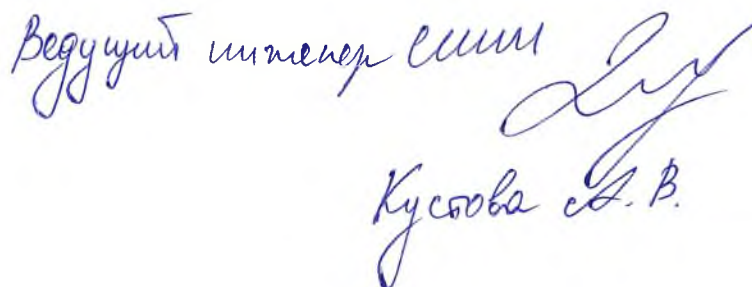 Ведущий инженер
Кустова А. В.